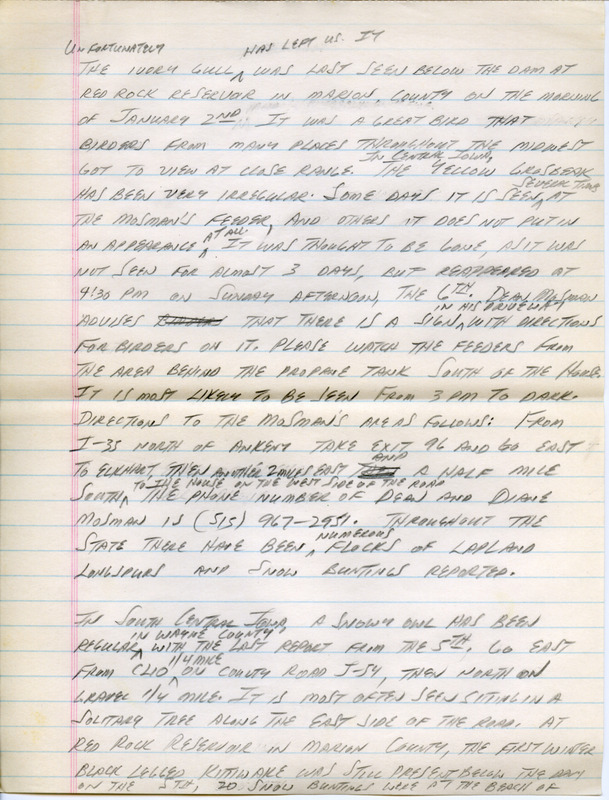 UNFORTUNATELY HAS LEFT US. IT
THE IVORY GULL ^ WAS LAST SEEN BELOW THE DAM AT
RED ROCK RESERVOIR IN MARION COUNTY ON THE MORNING
OF JANUARY 2ND. IT WAS A GREAT BIRD THAT
BIRDERS FROM MANY PLACES THROUGHOUT THE MIDWEST
GOT TO VIEW AT CLOSE RANGE. IN CENTRAL IOWA, THE YELLOW GROSBEAK
HAS BEEN VERY IRREGULAR. SOME DAYS IT IS SEEN SEVERAL TIMES AT
THE MOSMAN'S FEEDER, AND OTHERS IT DOES NOT PUT IN
AN APPEARANCE AT ALL. IT WAS THOUGHT TO BE GONE, AS IT WAS
NOT SEEN FOR ALMOST 3 DAYS, BUT REAPPEARED AT
4:30 PM ON SUNDAY AFTERNOON, THE 6TH. DEAN MOSMAN
ADVISES THAT THERE IS A SIGN IN HIS DRIVEWAY WITH DIRECTIONS
FOR BIRDERS ON IT. PLEASE WATCH THE FEEDERS FROM
THE AREA BEHIND THE PROPANE TANK SOUTH OF THE HOME.
IT IS MOST LIKELY TO BE SEEN FROM 3 PM TO DARK.
DIRECTIONS TO THE MOSMAN'S ARE AS FOLLOWS: FROM
I-35 NORTH OF ANKENY TAKE EXIT 96 AND GO EAST
TO ELKHART, THEN ANOTHER 2 MILES EAST AND A HALF MILE
SOUTH TO THE HOUSE ON THE WEST SIDE OF THE ROAD. THE PHONE NUMBER OF DEAN AND DIANE
MOSMAN IS (515) 967-2951. THROUGHOUT THE
STATE THERE HAVE BEEN NUMEROUS FLOCKS OF LAPLAND
LONGSPURS AND SNOW BUNTINGS REPORTED.
IN SOUTH CENTRAL IOWA, A SNOWY OWL HAS BEEN
REGULAR IN WAYNE COUNTY, WITH THE LAST REPORT FROM THE 5TH. GO EAST
FROM CLIO 1/4 MILE ON COUNTY ROAD J-54, THEN NORTH ON
GRAVEL 1/4 MILE. IT IS MOST OFTEN SEEN SITTING IN A
SOLITARY TREE ALONG THE EAST SIDE OF THE ROAD. AT
RED ROCK RESERVOIR IN MARION COUNTY, THE FIRST WINTER
BLACK LEGGED KITTIWAKE WAS STILL PRESENT BELOW THE DAM
ON THE 5TH. 20 SNOW BUNTINGS WERE AT THE BEACH OF